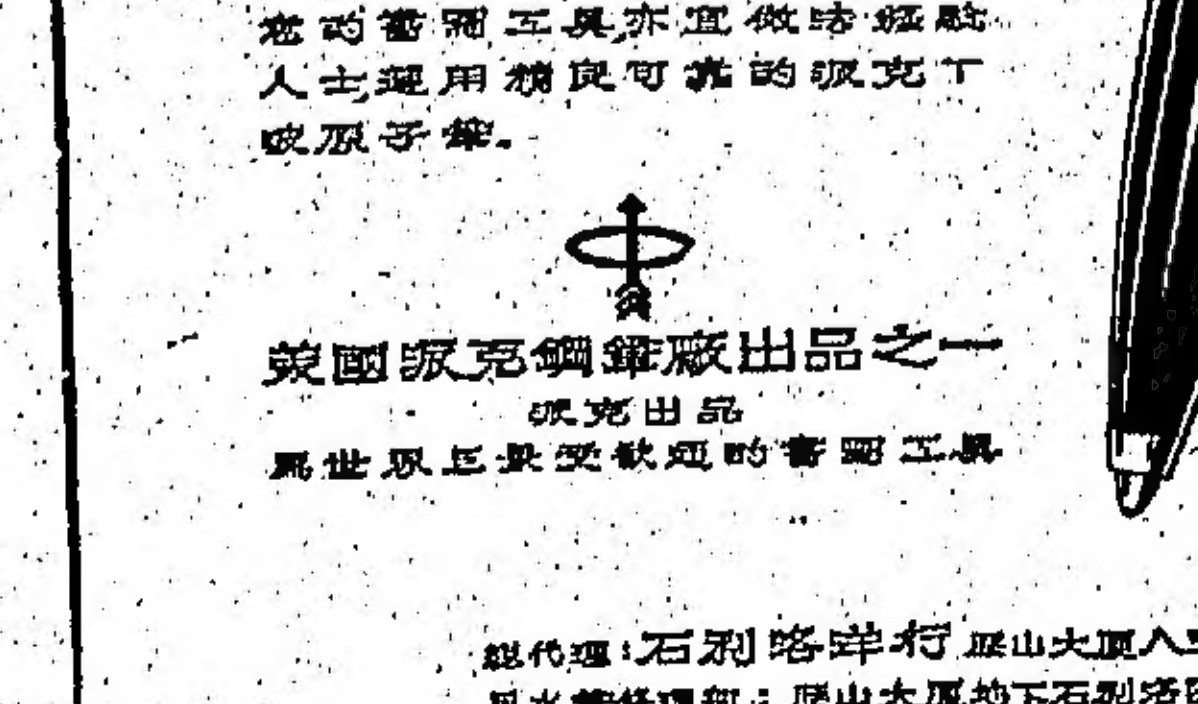 的書寫工具,亦宜做時經驗
人士,運用精良可靠的派克T
原子筆。
美國派克鋼筆廠出品之一
派克出品
為世界上最受歡迎的書寫工具
總代理:石利洛洋行 歷山大厦八
水筆修理部:歷山大厦地下石利洛